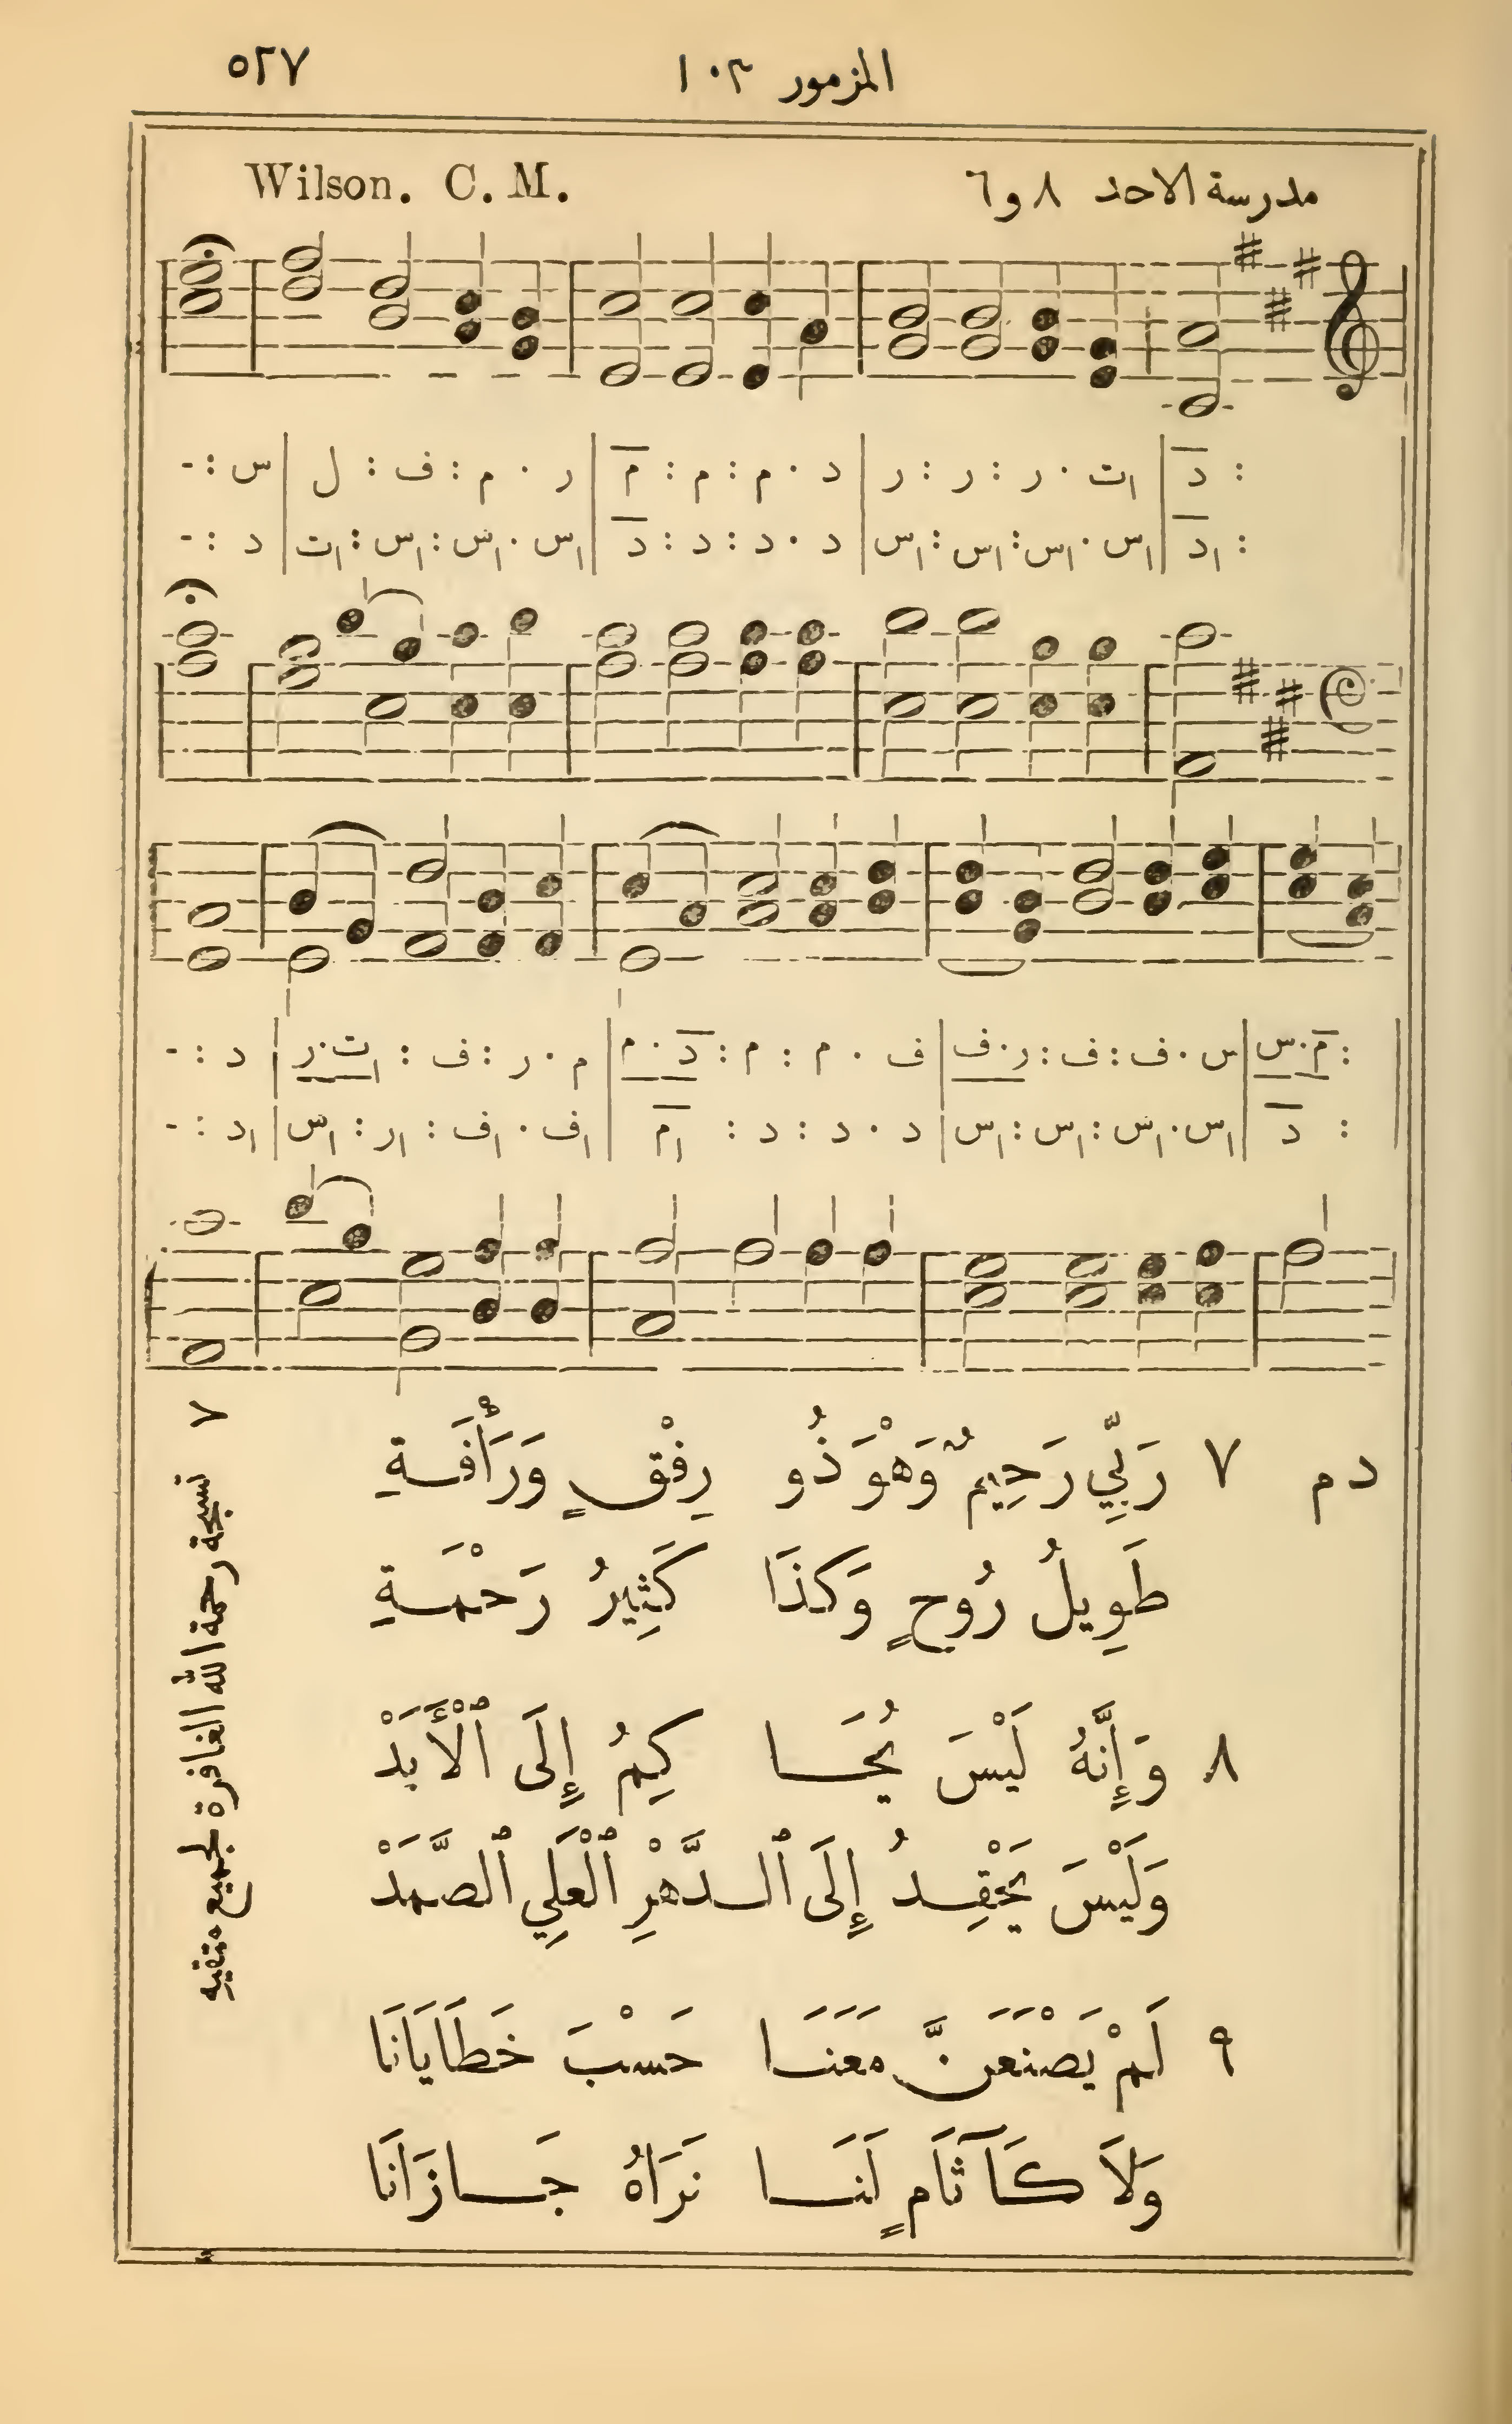 المزمور ١٠٣ ٥٢٧
مدرسة الاحد ٨ و٦ Wilson. C. M.
: د | ات . ر : ر : ر | د . م : م : م | ر . م : ف : ل | س : -
: اد | اس . اس : اس : اس | د . د : د : د | اس . اس : اس : ات | د : -
: م . س | س . ف : ف : ر . ف | ف . م : م : د . م | م . ر : ف : ات . ر | د : -
: د | اس . اس : اس : اس | د . د : د : ام | اف . اف : ار : اس | اد : -
دم ٧ رَبِّي رَحِيمٌ وَهْوَ ذُو رِفْقٍ وَرَأْفَةِ
طَوِيلُ رُوحٍ وَكَذَا كَثِيرُ رَحْمَةِ
٨ وَإِنَّهُ لَيْسَ يُحَا كِيمُ إِلَى ٱلْأَبَدْ
وَلَيْسَ يَحْقِدُ إِلَى ٱلدَّهْرِ ٱلْعَلِي ٱلصَّمَدْ
٩ لَمْ يَصْنَعَنَّ مَعَنَا حَسْبَ خَطَايَانَا
وَلَا كَآثَامٍ لَنَا نَرَاهُ جَازَانَا
٧ تسبحة رحمة الله الغافرة لجميع متقيه